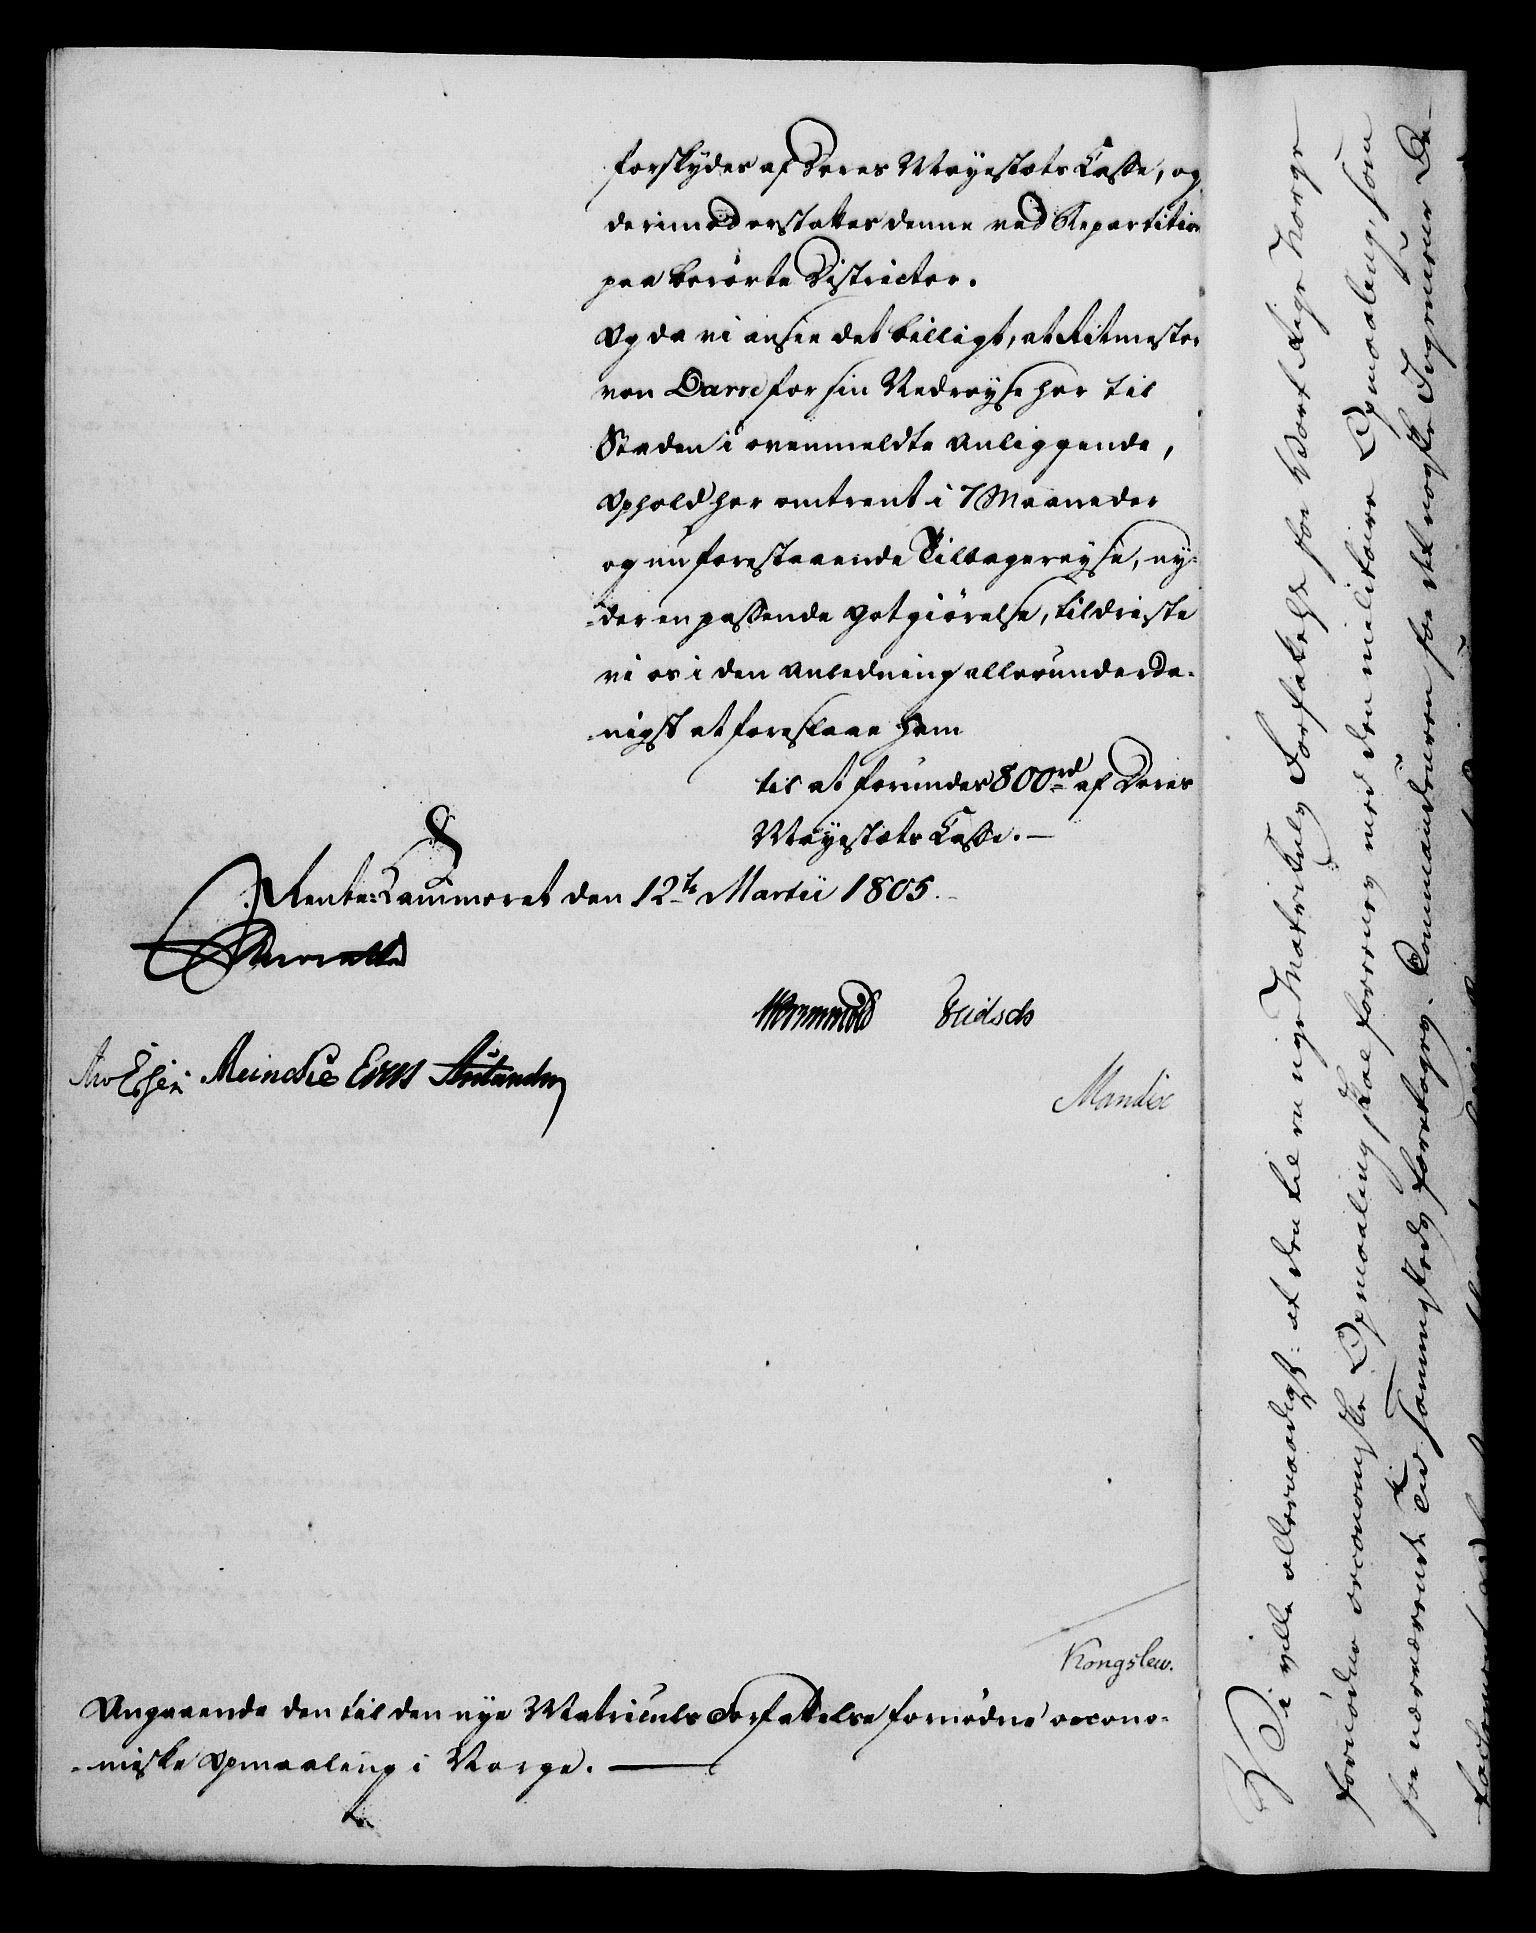 forskydes af Deres Mayestæts Casse, og
derimod erstattes denne ved Repartition
paa berörte Districter.
Og da vi ansee det billigt, at Ritmester
von Darre for sin Nedreyse her til
Staden i ovenmeldte Anliggende,
Ophold her omtrent i 7 Maaneder
og nu forestaaende Tilbagereyse, ny-
-der en passende Godtgiörelse, tildriste
vi os i den Anledning allerunderda-
-nigst at foreslaae ham
til at forundes 800 rd af Deres
Mayestæts Casse. —
Rente-Cammeret den 12te Martii 1805.
Wormskiold
Meincke
Mandix
Kongslew.
Angaaende den til den nye Matriculs Forfattelse fornödne oecono-
-miske Opmaaling i Norge. —
Vi ville allernaadigst: at den til en nye Matriculs Forfattelse for Vort Rige Norge
fornödne oeconomiske Opmaaling skal forenes med den militaire Opmaaling, som
for nærværende Tid sammesteds foretages. Commandeuren for det norske Ingenieur De-